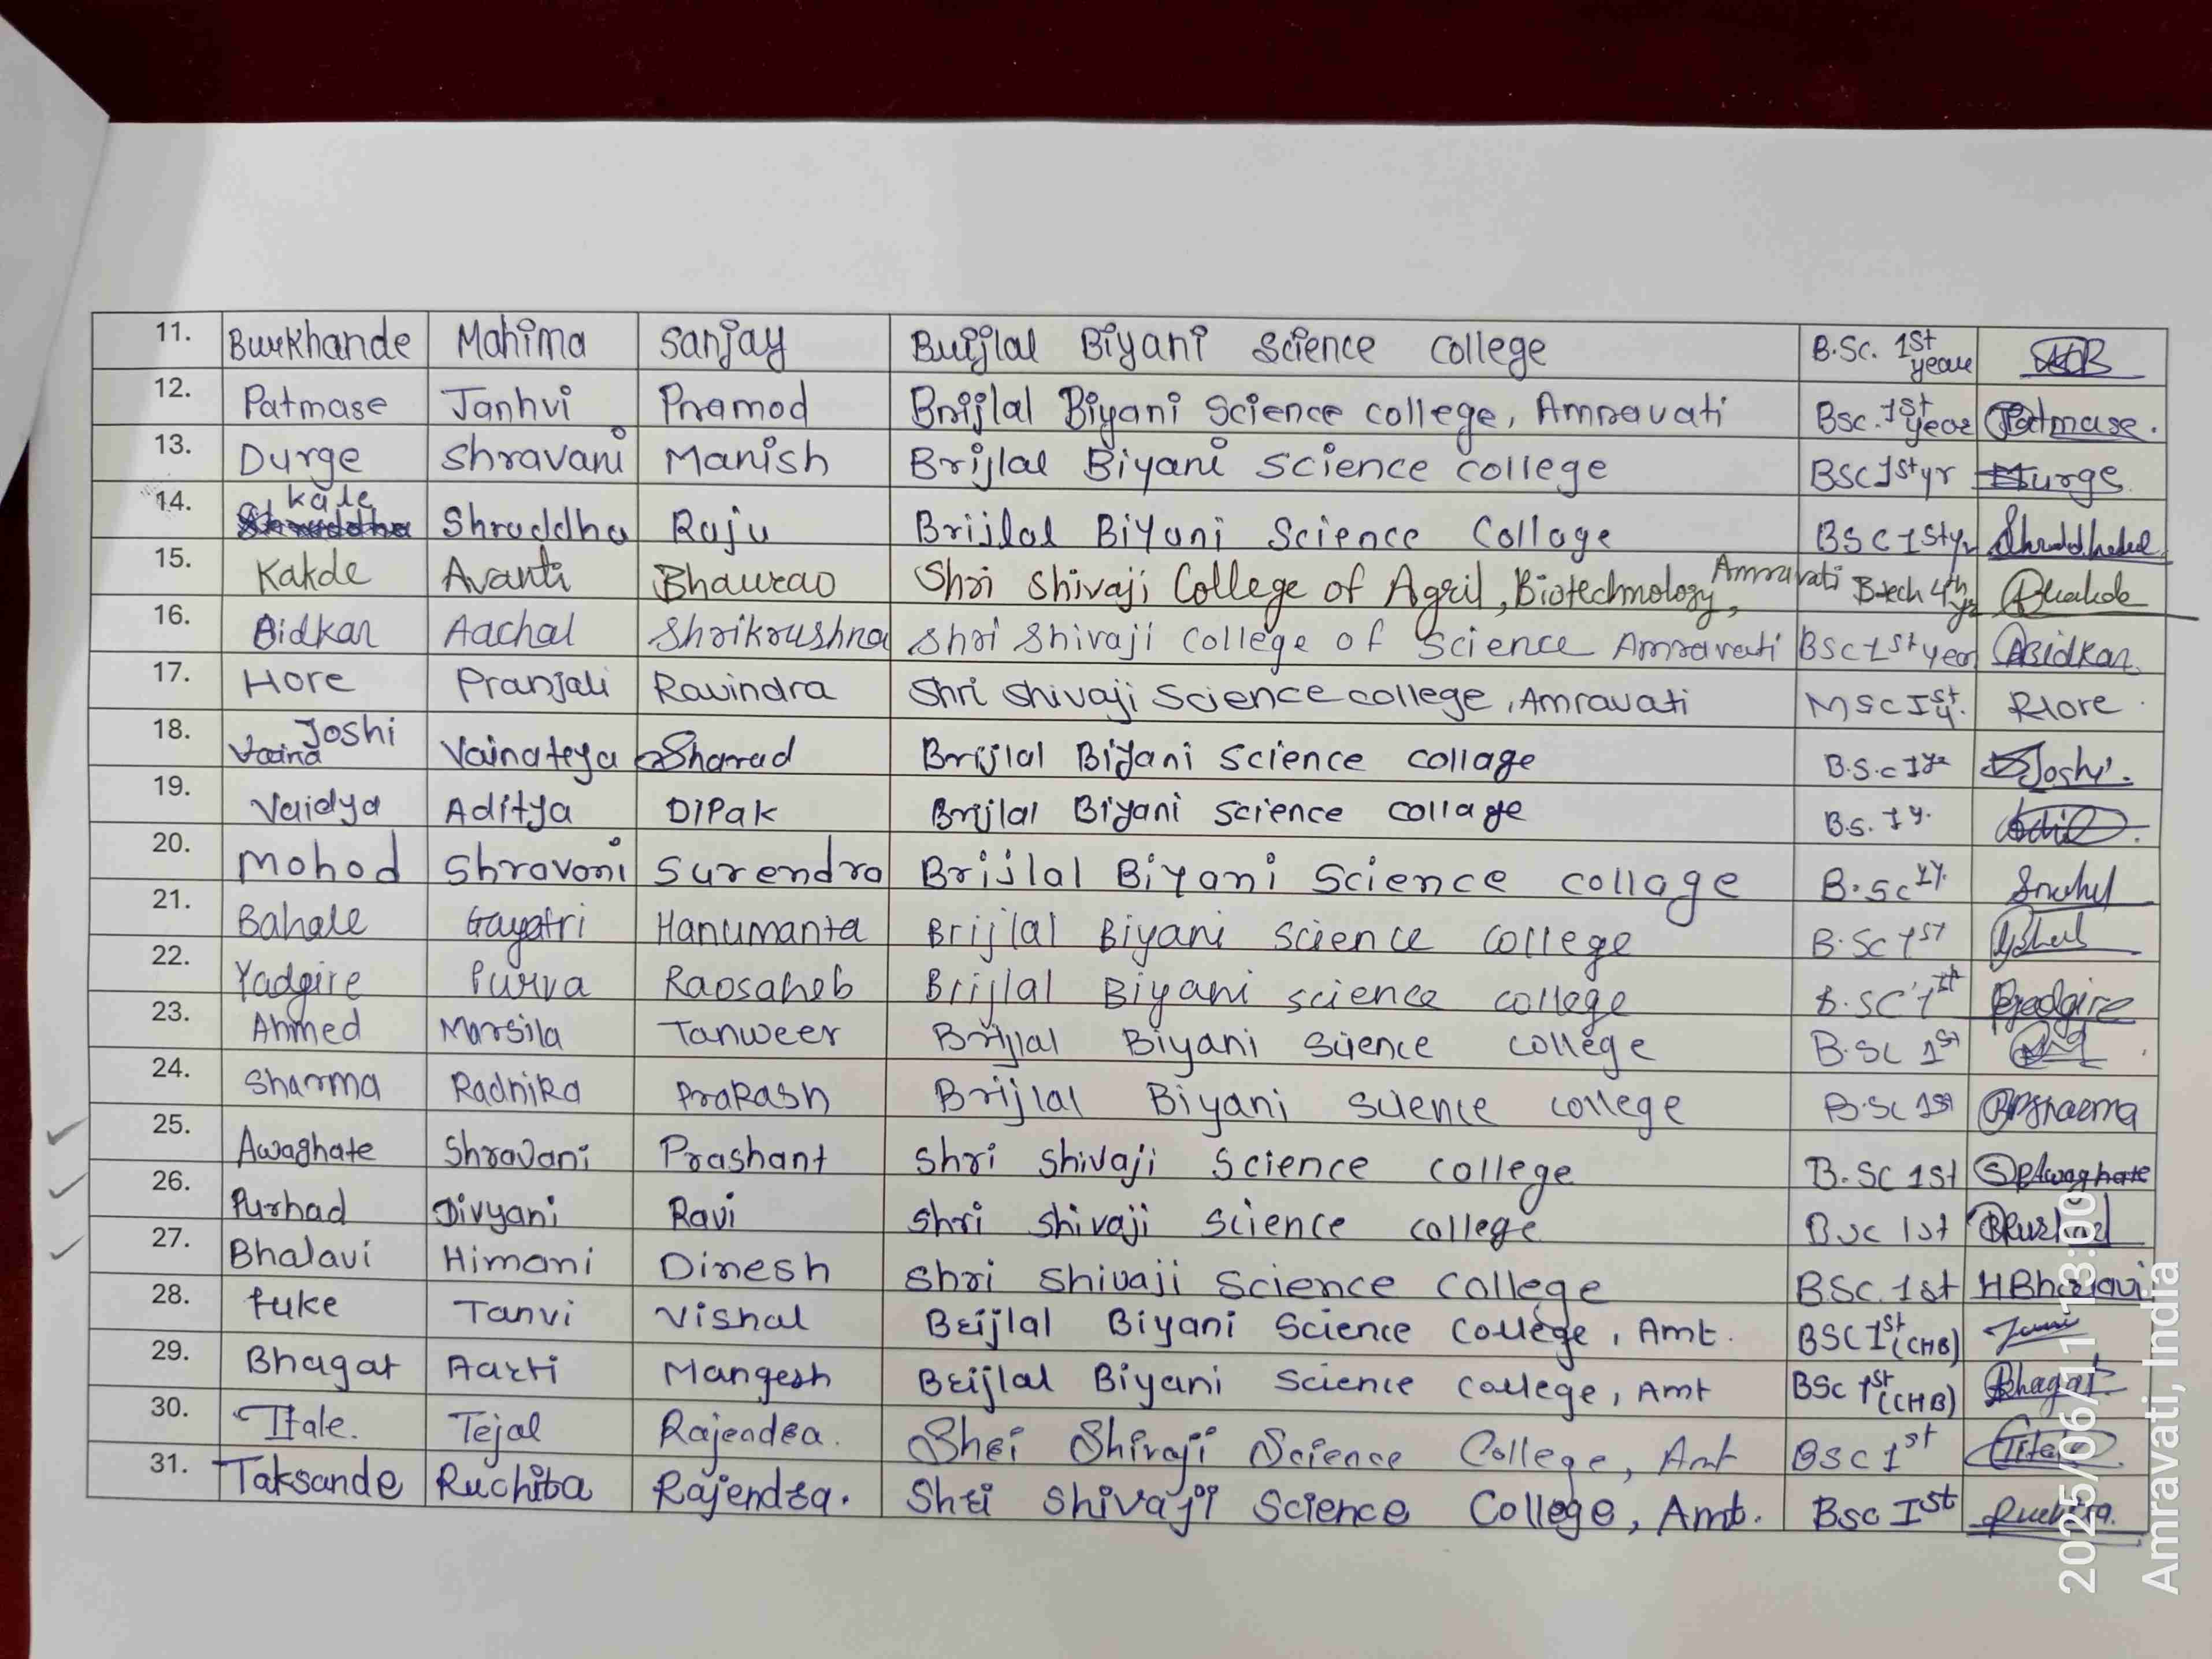 11. Burkhande Mahima Sanjay Brijlal Biyani Science College B.Sc. 1st year
12. Patmase Janhvi Pramod Brijlal Biyani Science college, Amravati Bsc. 1st year Patmase.
13. Durge Shravani Manish Brijlal Biyani Science college BSc 1st yr Durge
14. Kale Shraddha Raju Brijlal Biyani Science Collage BSC 1st yr
15. Kakde Avanti Bhaurao Shri Shivaji College of Agril, Biotechnology, Amravati B-tech 4th yr
16. Bidkar Aachal Shrikrushna Shri Shivaji College of Science Amravati BSc 1st year ABidkar
17. Hore Pranjali Ravindra Shri Shivaji Science college, Amravati MSc Ist y. PHore
18. Joshi Vainateya Sharad Brijlal Biyani Science collage B.S.c I yr Joshi.
19. Vaidya Aditya DIPak Brijlal Biyani Science collage B.S. I y.
20. Mohod Shravani Surendra Brijlal Biyani Science collage B.Sc I y.
21. Bahale Gayatri Hanumanta Brijlal Biyani Science College B.Sc 1st
22. Yadgire Purva Raosaheb Brijlal Biyani science college B.SC 1st Pyadgire
23. Ahmed Marsila Tanweer Brijlal Biyani Science college B.Sc 1st
24. Sharma Radhika Prakash Brijlal Biyani Science college B.Sc 1st RPSharma
25. Awaghate Shravani Prashant Shri Shivaji Science college B.Sc 1st SPAwaghate
26. Purhad Divyani Ravi Shri Shivaji Science college Bsc 1st
27. Bhalavi Himani Dinesh Shri Shivaji Science College BSc. 1st HBhalavi
28. Fuke Tanvi Vishal Brijlal Biyani Science College, Amt. BSC Ist (CHB)
29. Bhagat Aarti Mangesh Brijlal Biyani Science College, Amt BSc 1st (CHB) Bhagat
30. Itale. Tejal Rajendra. Shri Shivaji Science College, Amt BSC 1st
31. Taksande Ruchita Rajendra. Shri Shivaji Science College, Amt. Bsc Ist Ruchita.
2025/06/11 13:00
Amravati, India